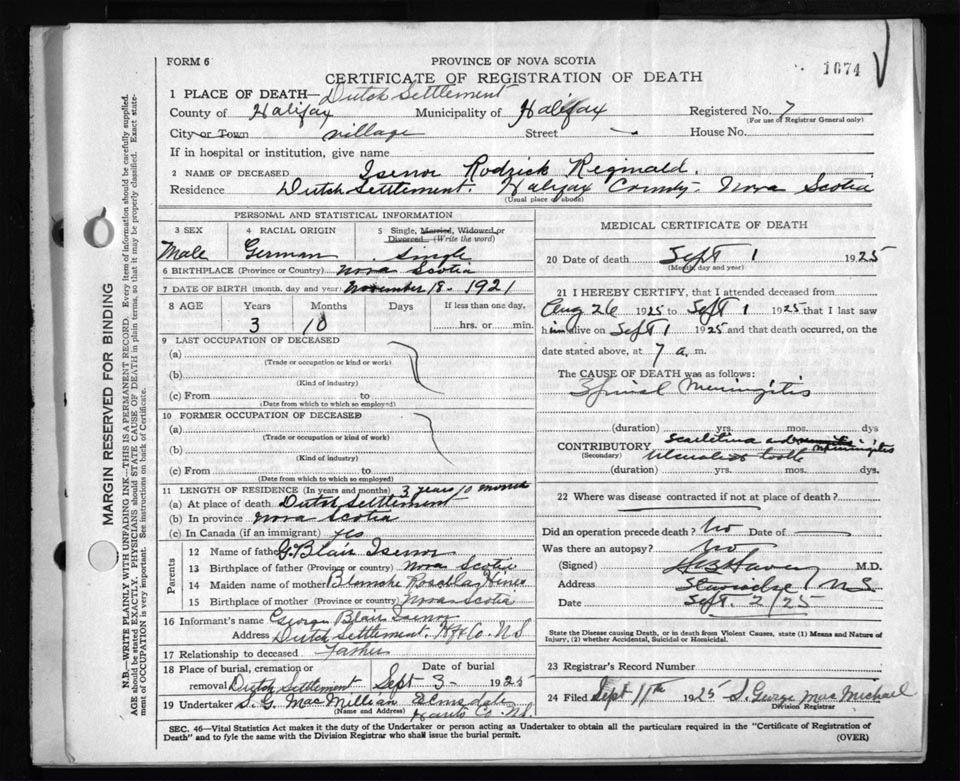 FORM 6
PROVINCE OF NOVA SCOTIA
CERTIFICATE OF REGISTRATION OF DEATH
1674
1 PLACE OF DEATH—Dutch Settlement
County of Halifax Municipality of Halifax Registered No. 7
(For use of Registrar General only)
City or Town village Street House No.
If in hospital or institution, give name
2 NAME OF DECEASED Isenor Rodrick Reginald.
Residence Dutch Settlement. Halifax County. Nova Scotia
(Usual place of abode)
PERSONAL AND STATISTICAL INFORMATION
3 SEX 4 RACIAL ORIGIN 5 Single, Married, Widowed or
Divorced (Write the word)
Male German Single
6 BIRTHPLACE (Province or Country) Nova Scotia
7 DATE OF BIRTH (month, day and year) November 18 - 1921
8 AGE Years Months Days If less than one day,
3 10 hrs. or min.
9 LAST OCCUPATION OF DECEASED
(a)
(Trade or occupation or kind of work)
(b)
(Kind of industry)
(c) From to
(Date from which to which so employed)
10 FORMER OCCUPATION OF DECEASED
(a)
(Trade or occupation or kind of work)
(b)
(Kind of industry)
(c) From to
(Date from which to which so employed)
11 LENGTH OF RESIDENCE (In years and months) 3 years 10 months
(a) At place of death Dutch Settlement
(b) In province Nova Scotia
(c) In Canada (if an immigrant) yes
Parents
12 Name of father G. Blair Isenor
13 Birthplace of father (Province or country) Nova Scotia
14 Maiden name of mother Blanche Hines
15 Birthplace of mother (Province or country) Nova Scotia
16 Informant's name George Blair Isenor
Address Dutch Settlement. Hfx Co. N.S
17 Relationship to deceased Father
18 Place of burial, cremation or Date of burial
removal Dutch Settlement Sept 3 - 1925
19 Undertaker S. G. MacMillian Elmsdale
(Name and Address) Hants Co. N.S.
MEDICAL CERTIFICATE OF DEATH
20 Date of death Sept 1 1925
(Month, day and year)
21 I HEREBY CERTIFY, that I attended deceased from
Aug 26 1925 to Sept 1 1925 that I last saw
him alive on Sept 1 1925 and that death occurred, on the
date stated above, at 7 a. m.
The CAUSE OF DEATH was as follows:
Spinal Meningitis
(duration) yrs. mos. days
CONTRIBUTORY Scarletina and Meningitis
(Secondary) tooth
(duration) yrs. mos. dys.
22 Where was disease contracted if not at place of death?
Did an operation precede death? No Date of
Was there an autopsy? No
(Signed) M.D.
Address N.S.
Date Sept. 2/25
State the Disease causing Death, or in death from Violent Causes, state (1) Means and Nature of
Injury, (2) whether Accidental, Suicidal or Homicidal.
23 Registrar's Record Number
24 Filed Sept 11th 1925 S. George MacMichael
Division Registrar
SEC. 46—Vital Statistics Act makes it the duty of the Undertaker or person acting as Undertaker to obtain all the particulars required in the "Certificate of Registration of
Death" and to fyle the same with the Division Registrar who shall issue the burial permit. (OVER)
MARGIN RESERVED FOR BINDING
N.B.—WRITE PLAINLY WITH UNFADING INK—THIS IS A PERMANENT RECORD. Every item of information should be carefully supplied.
AGE should be stated EXACTLY. PHYSICIANS should STATE CAUSE OF DEATH in plain terms, so that it may be properly classified. Exact state-
ment of OCCUPATION is very important. See instructions on back of Certificate.